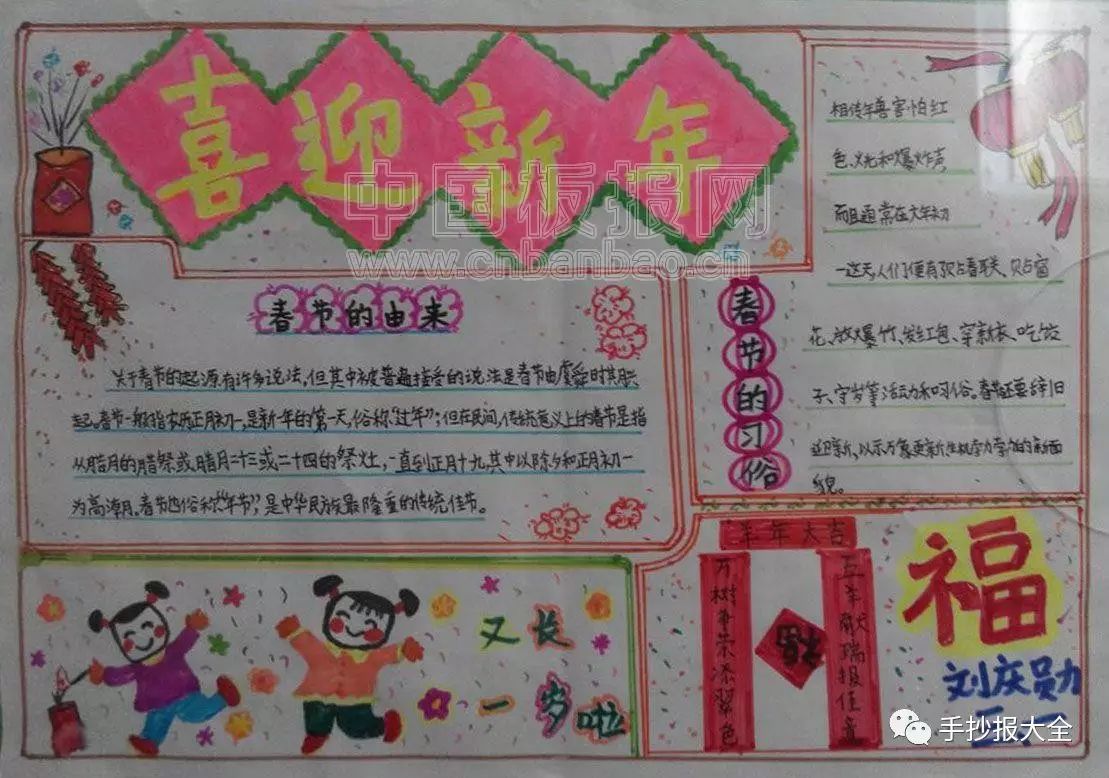 喜迎新年
中国板报网
www.cnbanbao.cn
春节的由来
关于春节的起源有许多说法,但其中被普遍接受的说法是春节由虞舜时期兴
起。春节一般指农历正月初一,是新年的第一天,俗称“过年”;但在民间,传统意义上的春节是指
从腊月的腊祭或腊月二十三或二十四的祭灶,一直到正月十九,其中以除夕和正月初一
为高潮。春节也俗称“年节”,是中华民族最隆重的传统佳节。
春节的习俗
相传年兽害怕红
色、火光和爆炸声
而且通常在大年初
一这天,人们便有了贴春联、贴窗
花、放爆竹、发红包、穿新衣、吃饺
子、守岁等活动和习俗。春节还要辞旧
迎新,以示万象更新生机勃勃的新面
貌。
又长
一岁啦
羊年大吉
万树争荣添翠色
五羊献瑞报佳音
福
福
刘庆勋
手抄报大全